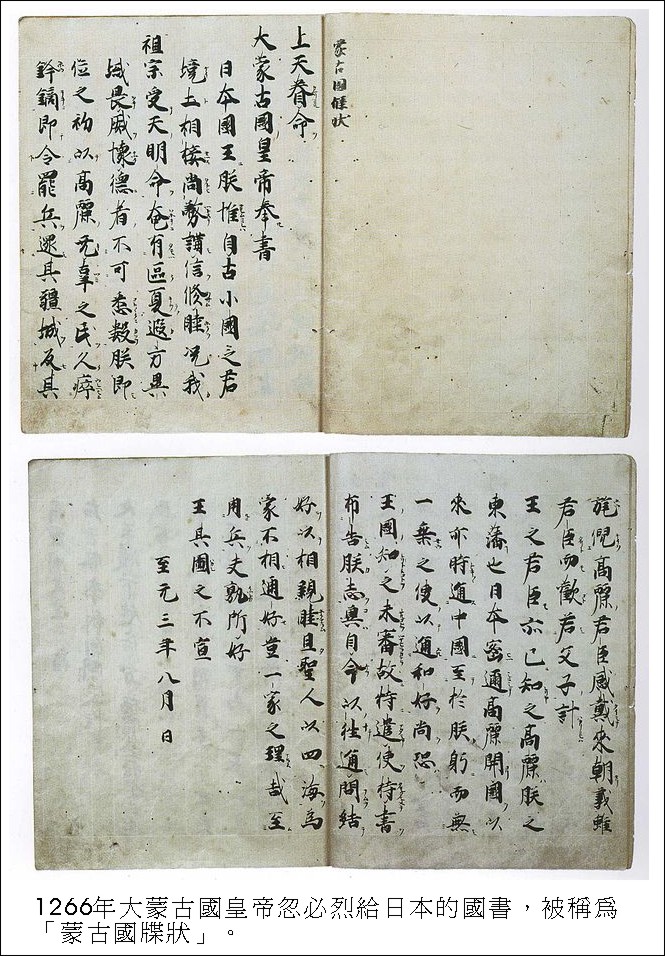 蒙古國牒状
上天眷命
大蒙古國皇帝奉書
日本國王朕惟自古小國之君
境土相接尚務講信修睦况我
祖宗受天明命奄有區夏遐方異
域畏威懷德者不可悉数朕即
位之初以高麗无辜之民久瘁
鋒鏑即令罷兵還其疆域反其
旄倪高麗君臣感戴来朝義雖
君臣而歡若父子計
王之君臣亦已知之高麗朕之
東藩也日本密迩高麗開國以
来亦時通中國至於朕躬而無
一乗之使以通和好尚恐
王國知之未審故特遣使持書
布告朕志冀自今以往通問結
好以相親睦且聖人以四海為
家不相通好豈一家之理哉至
用兵夫孰所好
王其圖之不宣
至元三年八月日
1266年大蒙古國皇帝忽必烈給日本的國書，被稱爲
「蒙古國牒狀」。